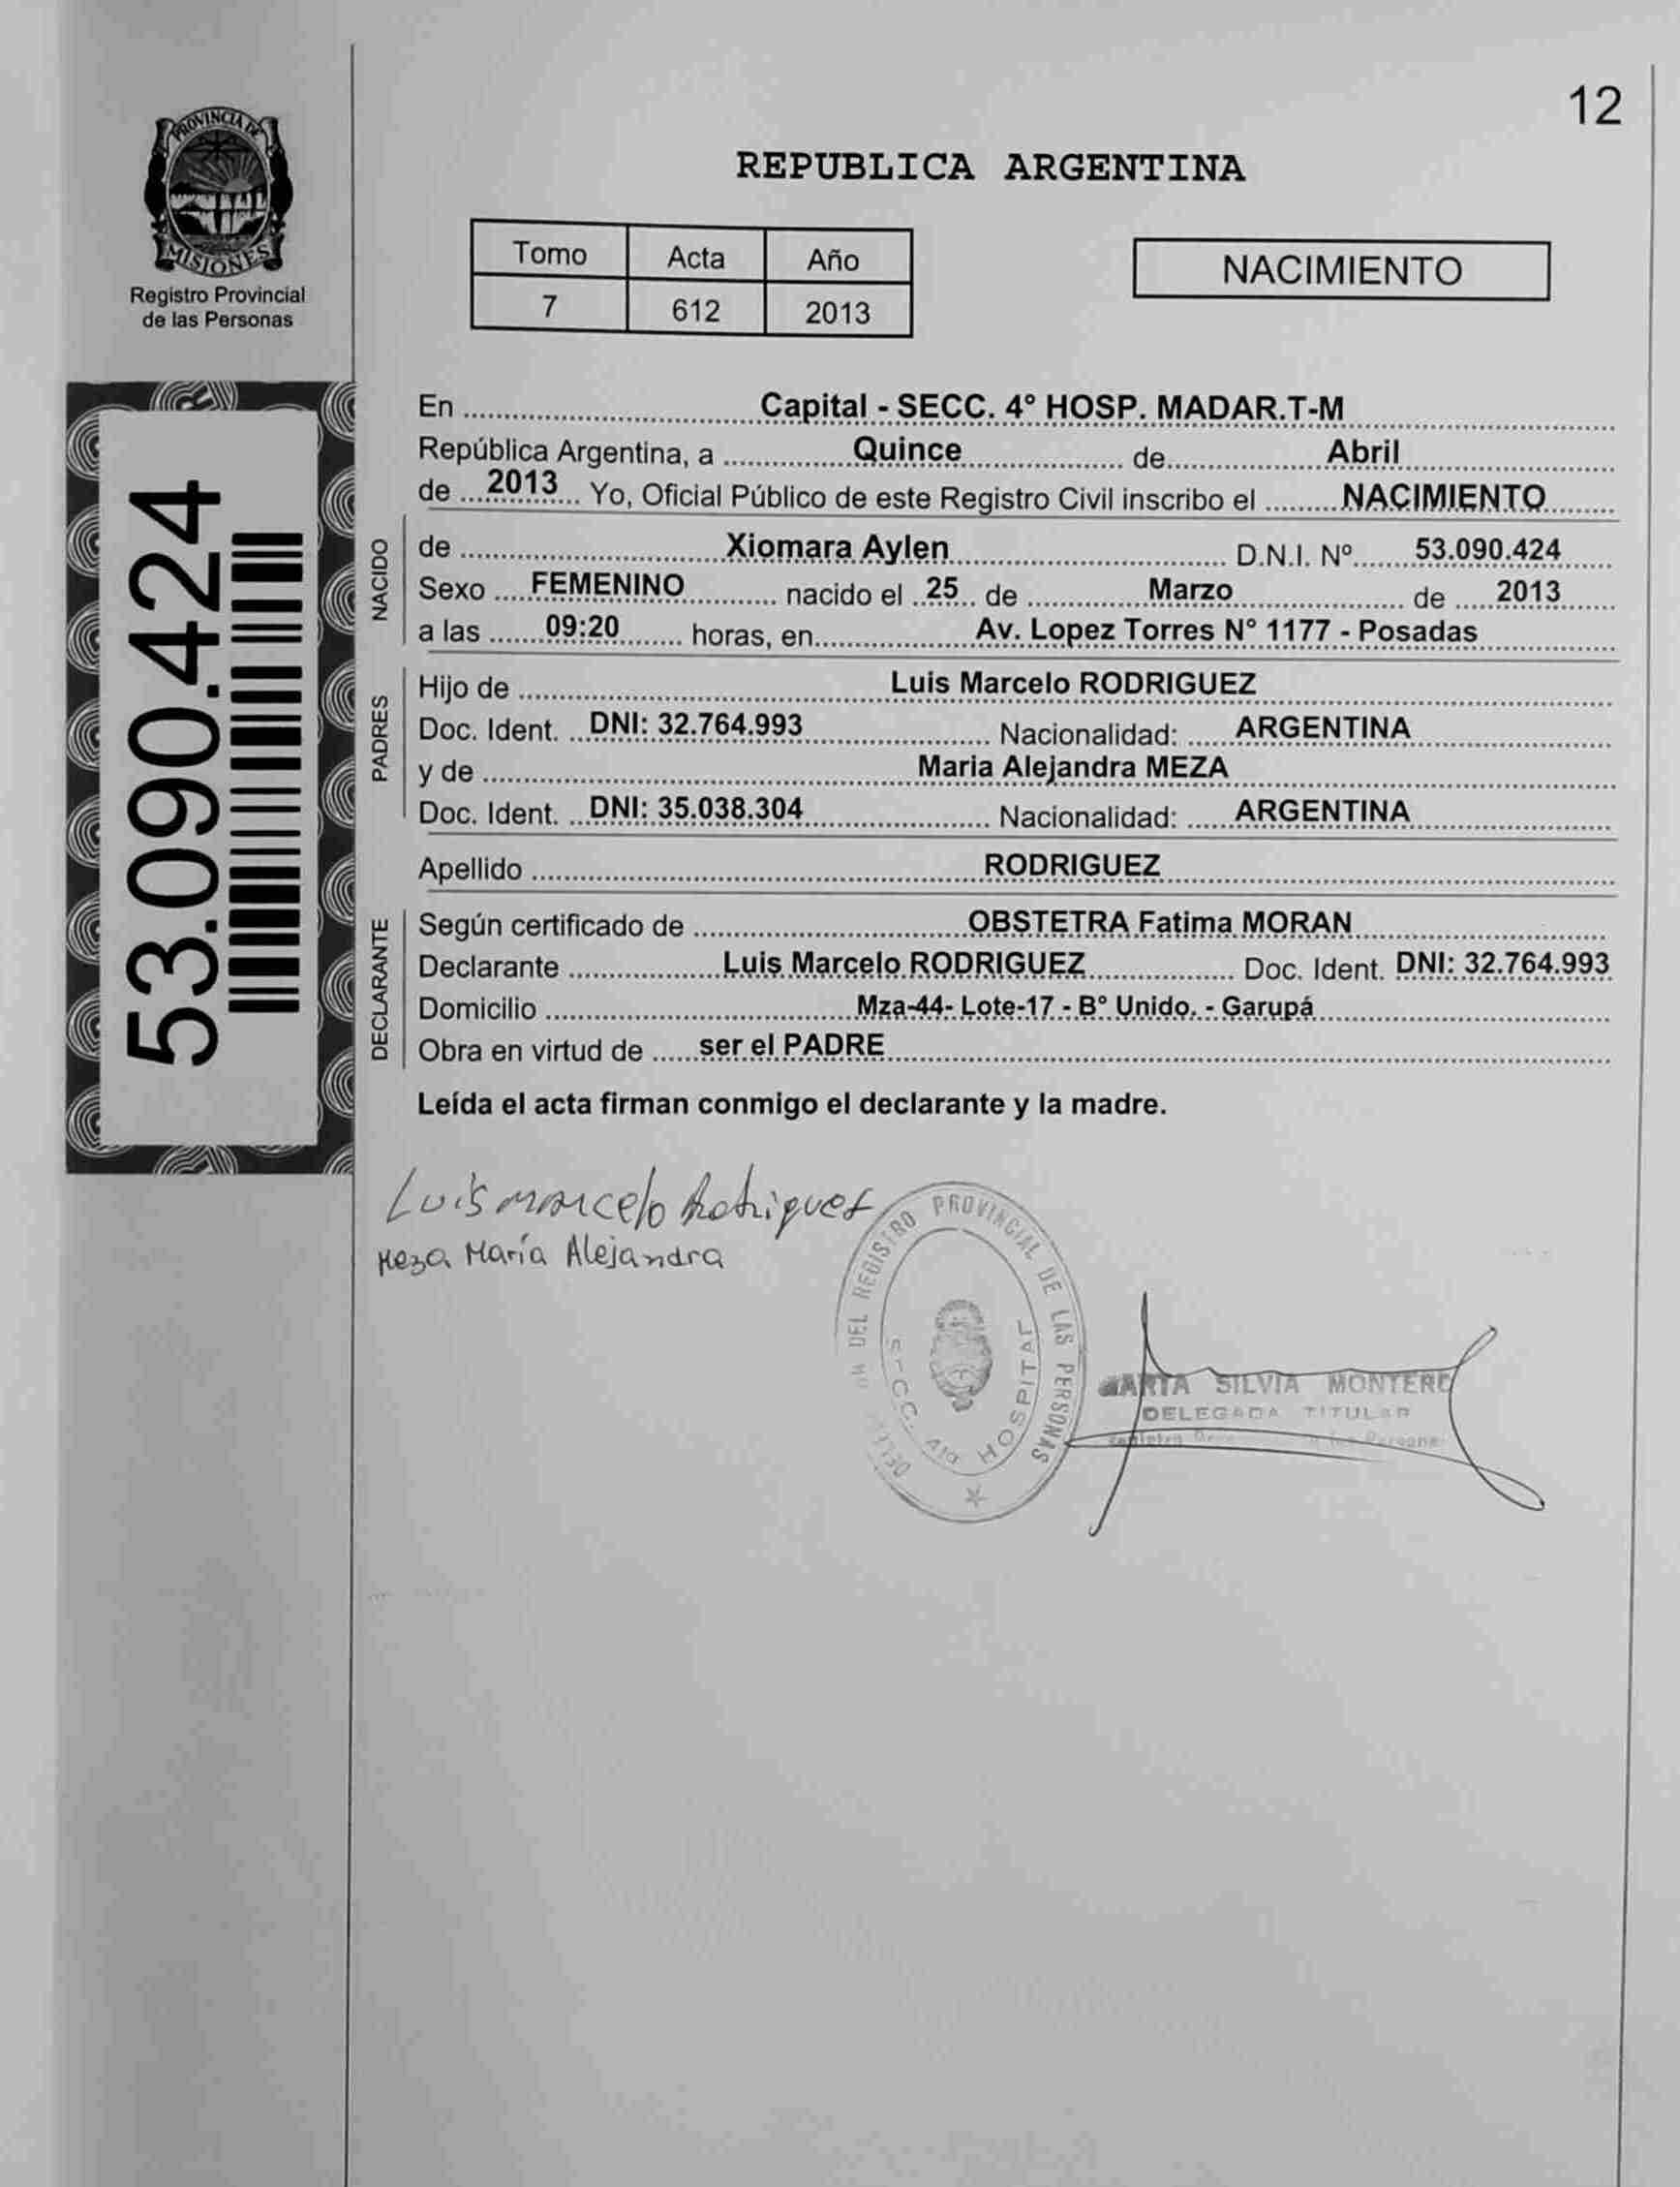 12
PROVINCIA DE
MISIONES
Registro Provincial
de las Personas
REPUBLICA ARGENTINA
Tomo Acta Año
7 612 2013
NACIMIENTO
53.090.424
En Capital - SECC. 4° HOSP. MADAR.T-M
República Argentina, a Quince de Abril
de 2013 Yo, Oficial Público de este Registro Civil inscribo el NACIMIENTO
NACIDO
de Xiomara Aylen D.N.I. Nº 53.090.424
Sexo FEMENINO nacido el 25 de Marzo de 2013
a las 09:20 horas, en Av. Lopez Torres N° 1177 - Posadas
PADRES
Hijo de Luis Marcelo RODRIGUEZ
Doc. Ident. DNI: 32.764.993 Nacionalidad: ARGENTINA
y de Maria Alejandra MEZA
Doc. Ident. DNI: 35.038.304 Nacionalidad: ARGENTINA
Apellido RODRIGUEZ
DECLARANTE
Según certificado de OBSTETRA Fatima MORAN
Declarante Luis Marcelo RODRIGUEZ Doc. Ident. DNI: 32.764.993
Domicilio Mza-44- Lote-17 - B° Unido. - Garupá
Obra en virtud de ser el PADRE
Leída el acta firman conmigo el declarante y la madre.
Luis marcelo Rodriguez
Meza María Alejandra
DEL REGISTRO PROVINCIAL DE LAS PERSONAS
HOSPITAL
SILVIA MONTERO
DELEGADA TITULAR